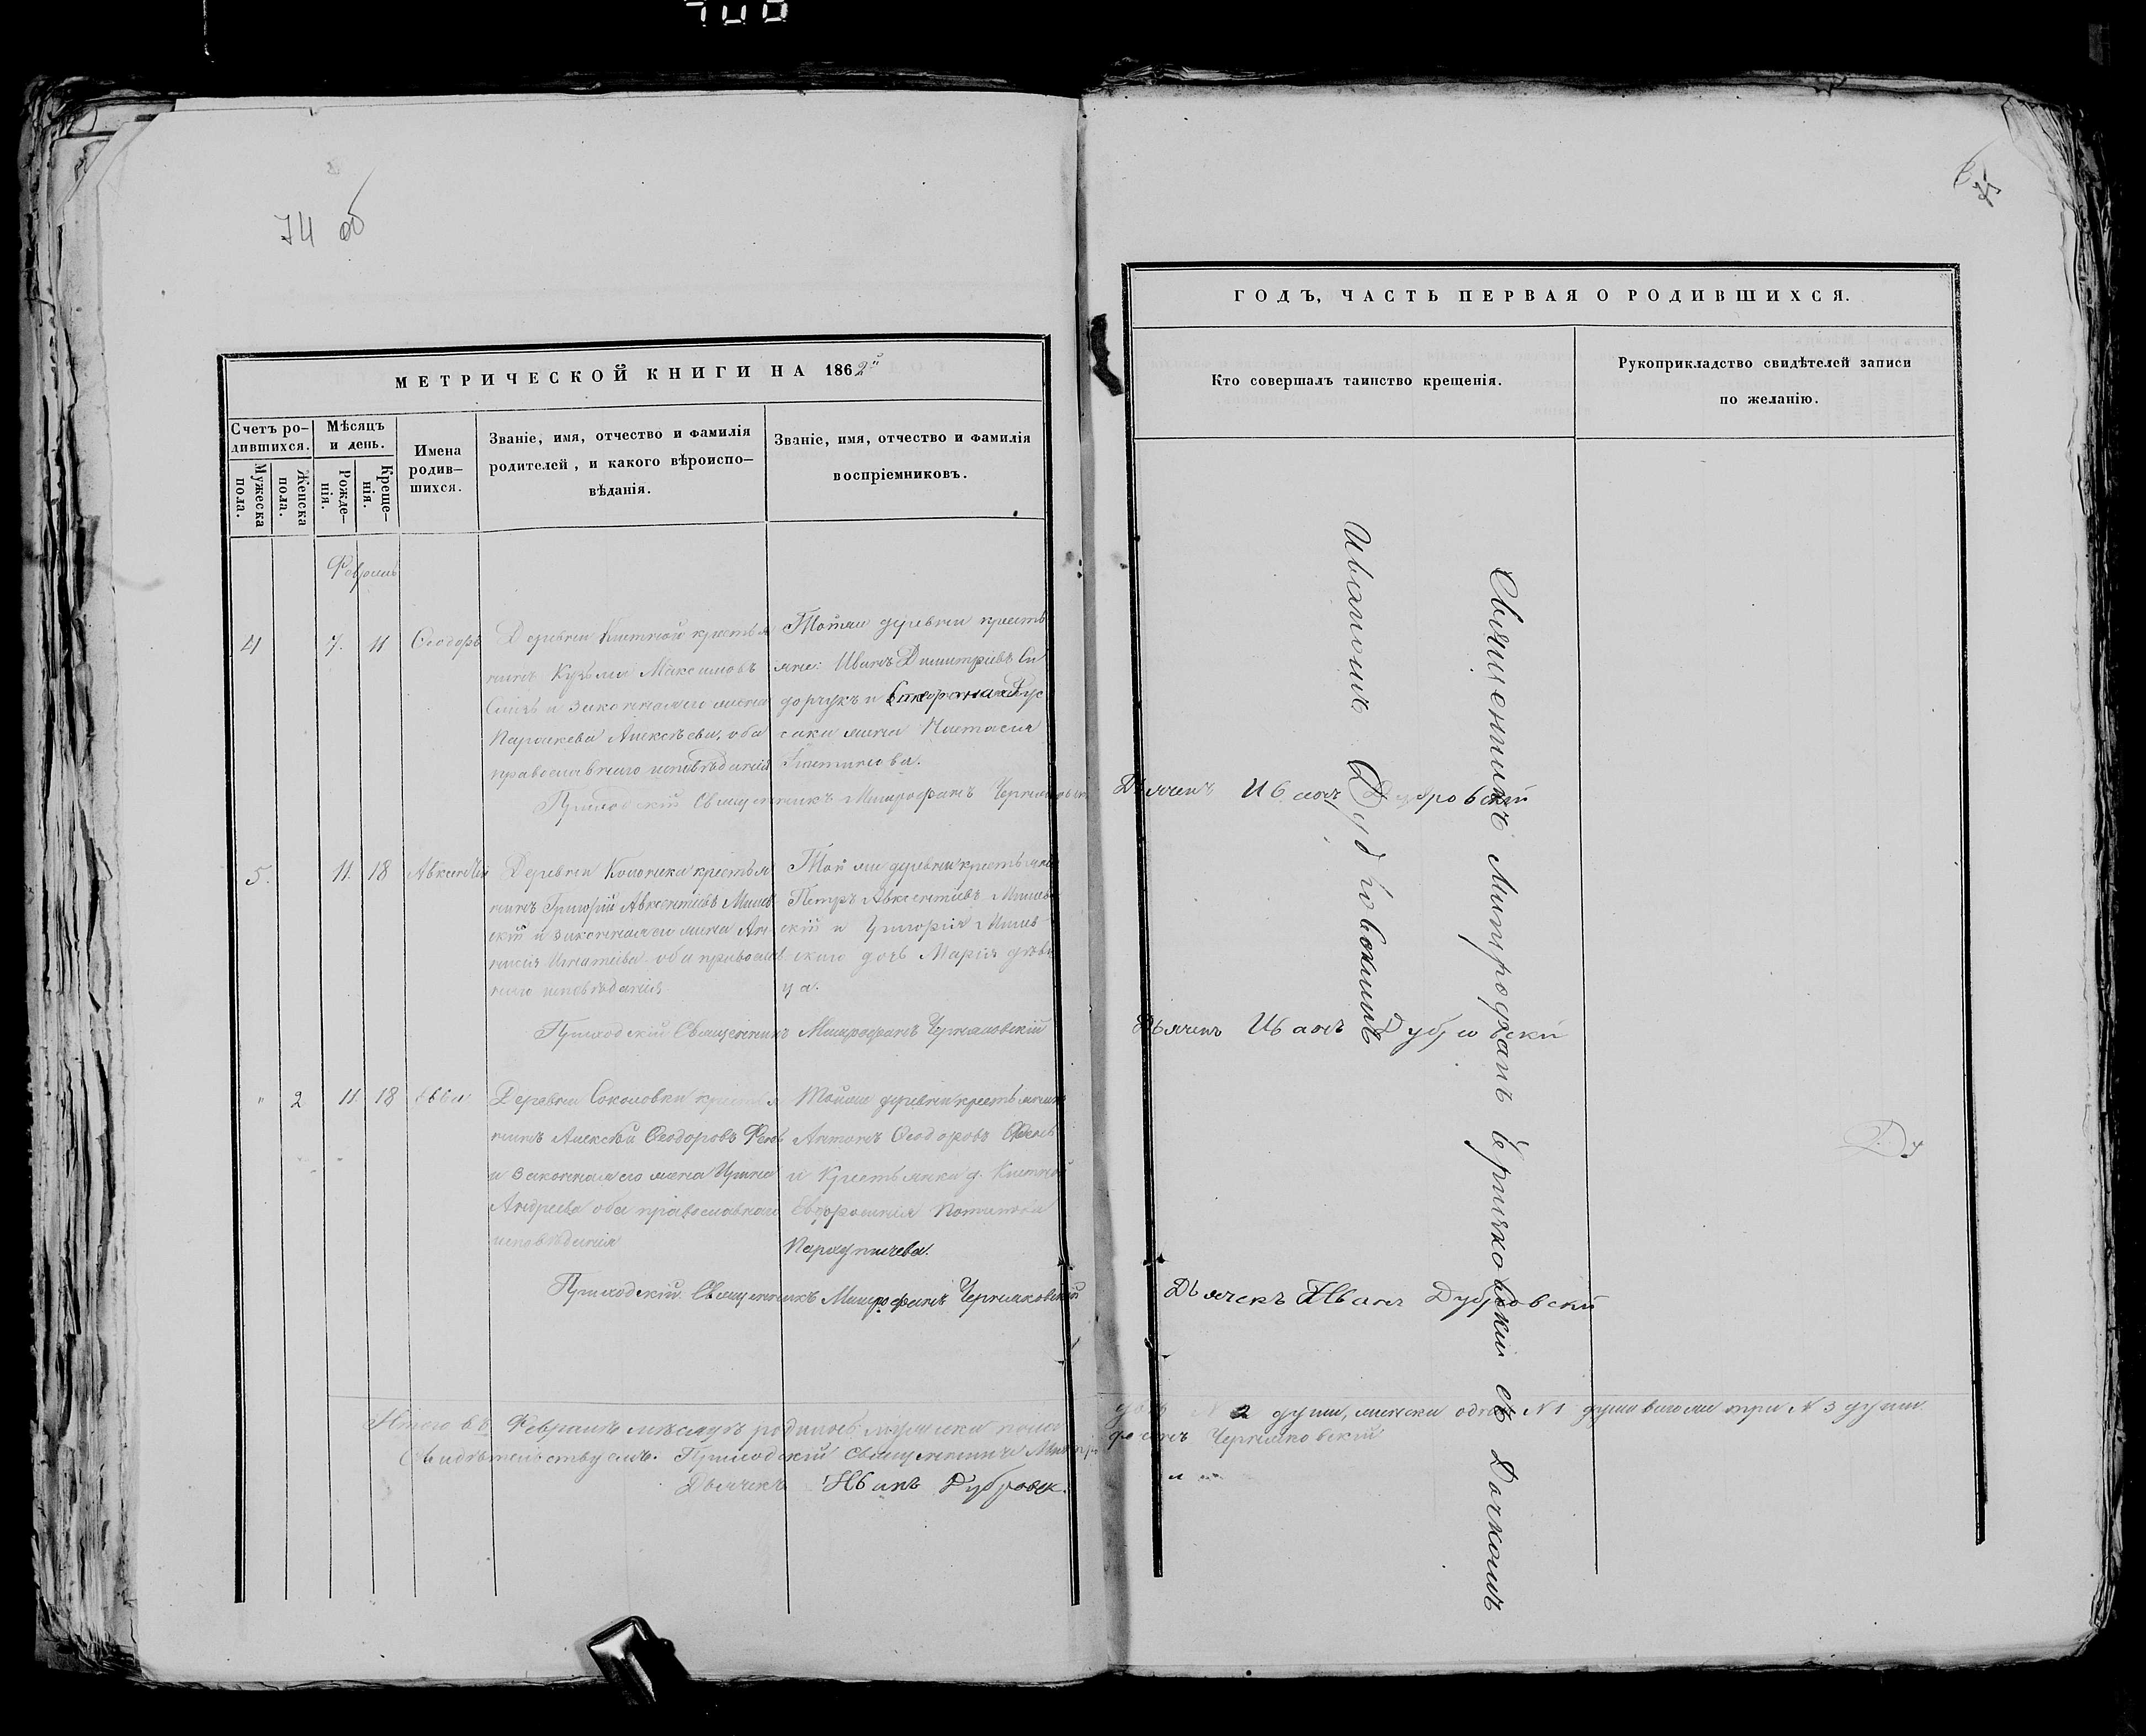 74 об
75
МЕТРИЧЕСКОЙ КНИГИ НА 1862й
Счетъ ро-
дившихся.
Мужеска
пола.
Женска
пола.
Мѣсяцъ
и день.
Рожде-
нія.
Креще-
нія.
Имена
родив-
шихся.
Званіе, имя, отчество и фамилія
родителей, и какого вѣроиспо-
вѣданія.
Званіе, имя, отчество и фамилія
воспріемниковъ.
Февраль
4 7. 11 Ѳеодоръ
Деревни крестья
нинъ Кузьма Максимовъ
и законная его жена
Параскева Алексѣева, оба
православнаго исповѣданія
Тойже деревни кресть
яне: Иванъ Димитріевъ Си
дорчукъ и
сака жена Настасия
Приходскій Священникъ Митрофанъ Черняковскій
5. 11. 18 Авксентій
Деревни крестья
нинъ Григорій Авксентіевъ Милев
скій и законная его жена Ан
на Игнатіева оба православ
наго исповѣданія
Той же деревни крестьяне
Петръ Авксентіевъ Милев
скій и Григорія Милев
скаго дочь Марія дѣви
ца.
Приходскій Священникъ Митрофанъ Черняковскій
" 2 11 18 Евва
Деревни Соколовки крестья
нинъ Алексѣй Ѳеодоровъ
и законная его жена Ирина
Андреева оба православнаго
исповѣданія
Тойже деревни крестьянинъ
Антонъ Ѳеодоровъ
и Крестьянка д.
Евфросинія
Приходскій Священникъ Митрофанъ Черняковскій
Итого въ Февралѣ мѣсяцѣ родилось мужеска пола
Свидѣтельствуемъ: Приходскій Священникъ Митро
Дьячекъ Иванъ Дубровск
ГОДЪ, ЧАСТЬ ПЕРВАЯ О РОДИВШИХСЯ.
Кто совершалъ таинство крещенія.
Рукоприкладство свидѣтелей записи
по желанію.
Священникъ Митрофанъ Черняковскій съ Дьячкомъ
Иваномъ Дубровскимъ
Дьячекъ Иванъ Дубровскій
Дьячекъ Иванъ Дубровскій
Дьячекъ Иванъ Дубровскій
двѣ N 2 души, женска одна N 1 душа всего же три N 3 души.
фанъ Черняковскій